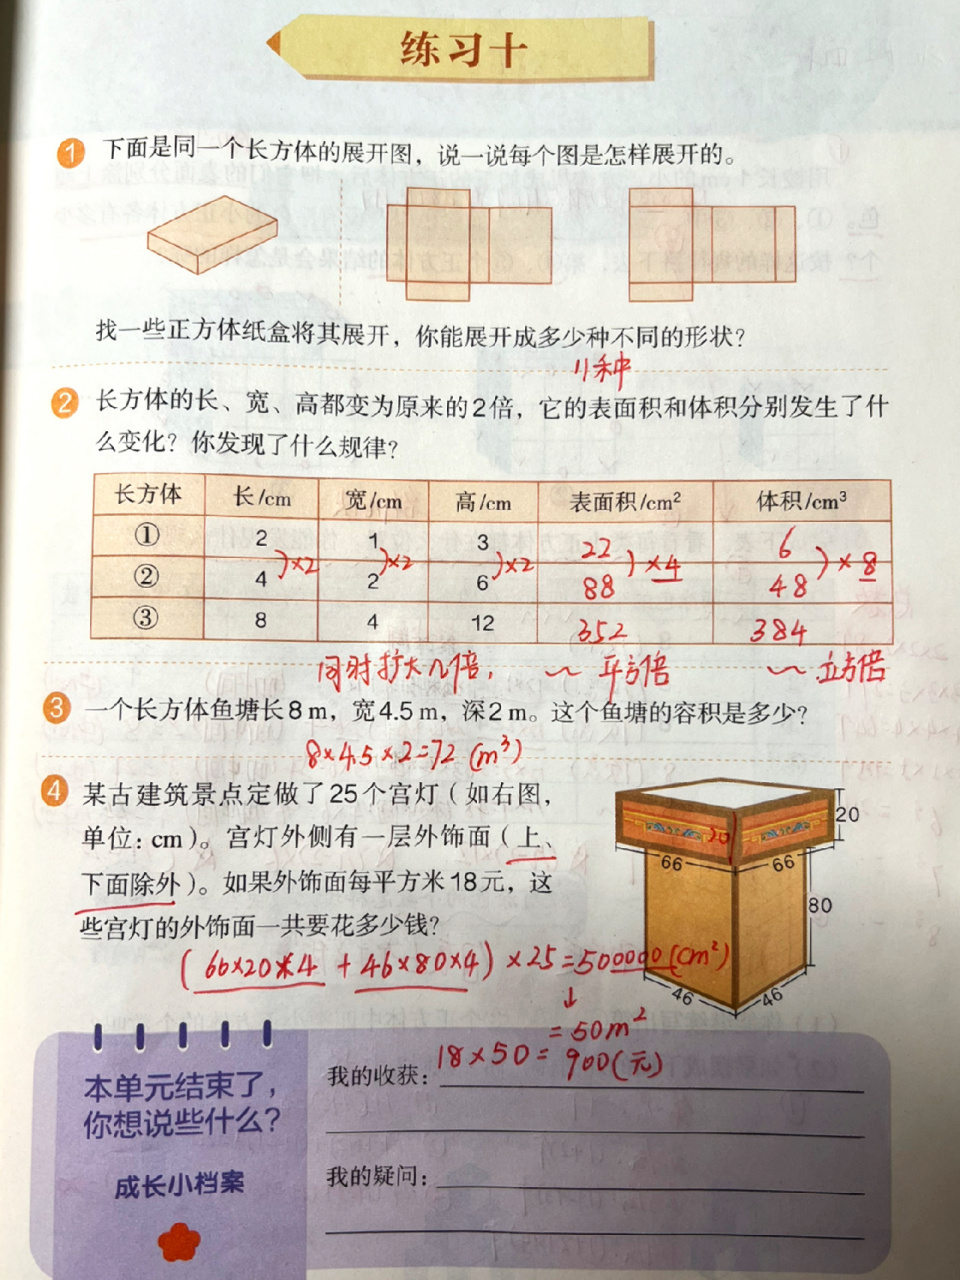 练习十
1 下面是同一个长方体的展开图，说一说每个图是怎样展开的。
找一些正方体纸盒将其展开，你能展开成多少种不同的形状？
11种
2 长方体的长、宽、高都变为原来的2倍，它的表面积和体积分别发生了什
么变化？你发现了什么规律？
长方体 长/cm 宽/cm 高/cm 表面积/cm² 体积/cm³
① 2 1 3 22 6
)×2 )×2 )×2 )×4 )×8
② 4 2 6 88 48
③ 8 4 12 352 384
同时扩大几倍， ～ 平方倍 ～ 立方倍
3 一个长方体鱼塘长8 m，宽4.5 m，深2 m。这个鱼塘的容积是多少？
8×4.5×2=72 (m³)
4 某古建筑景点定做了25个宫灯（如右图，
单位：cm）。宫灯外侧有一层外饰面（上、
下面除外）。如果外饰面每平方米18元，这
些宫灯的外饰面一共要花多少钱？
20
20
66 66
80
46 46
(66×20×4 + 46×80×4) ×25=500000(cm²)
↓
=50m²
18×50= 900(元)
本单元结束了，
你想说些什么？
成长小档案
我的收获：
我的疑问：